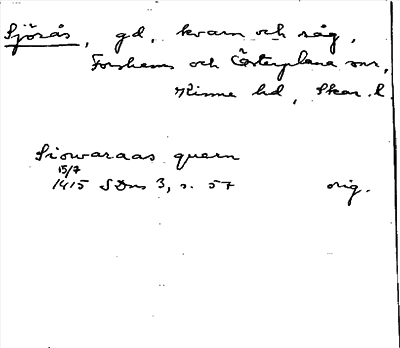 Sjörås, gd, kvarn och såg,
Forshems och Österplana snr,
Kinne hd, Skar. l.
Siowaraas quern
15/7
1415 SDns 3, s. 57 orig.